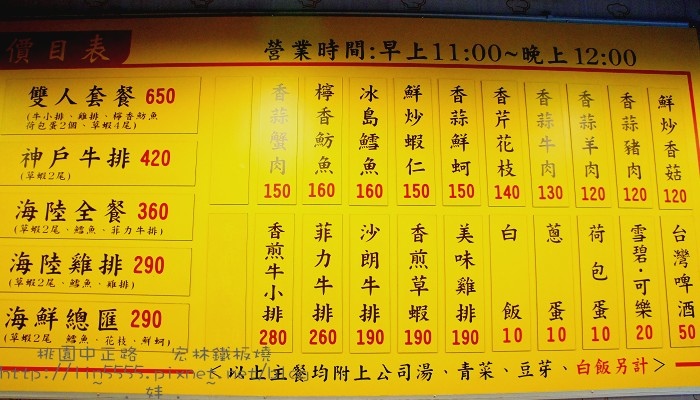 價目表
營業時間:早上11:00~晚上12:00
雙人套餐 650
(牛小排、雞排、檸香魴魚
荷包蛋2個、草蝦4尾)
神戶牛排 420
(草蝦2尾)
海陸全餐 360
(草蝦2尾、鱈魚、菲力牛排)
海陸雞排 290
(草蝦2尾、鱈魚、雞排)
海鮮總匯 290
(草蝦2尾、鱈魚、花枝、鮮蚵)
香蒜蟹肉 150
檸香魴魚 160
冰島鱈魚 160
鮮炒蝦仁 150
香蒜鮮蚵 150
香芹花枝 140
香蒜牛肉 130
香蒜羊肉 120
香蒜豬肉 120
鮮炒香菇 120
香煎牛小排 280
菲力牛排 260
沙朗牛排 190
香煎草蝦 190
美味雞排 190
白飯 10
蔥蛋 10
荷包蛋 10
雪碧·可樂 20
台灣啤酒 50
<以上主餐均附上公司湯、青菜、豆芽、白飯另計>
桃園中正路 宏林鐵板燒